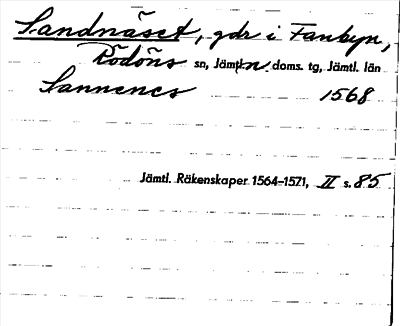 Sandnäset, gdr i Fanbyn,
Rödöns sn, Jämtl.n. doms. tg, Jämtl. län
Sannenes 1568
Jämtl. Räkenskaper 1564–1571, II s. 85